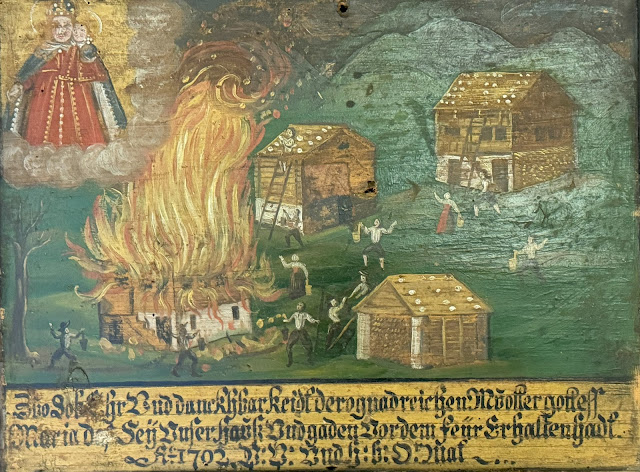 Zuo Lob Ehr Vnd danckhbarkeidt der gnadreichen Muotter gottess
Maria Seÿ Vnser hauß Vnd gaden Vor dem feur Erhalten hadt
A: 1702. P. P. Vnd h: h.